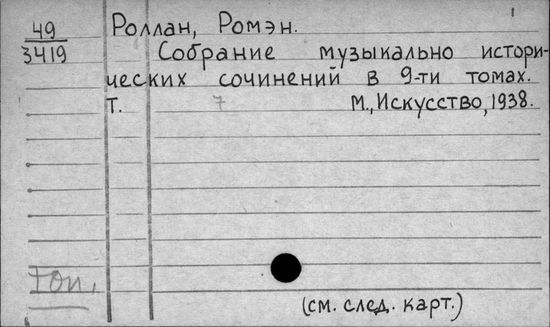 1
49 Роллан, Ромэн.
3419 Собрание музыкально истори-
ческих сочинений в 9-ти томах.
Т. 7 М., Искусство, 1938.
(см. след. карт.)